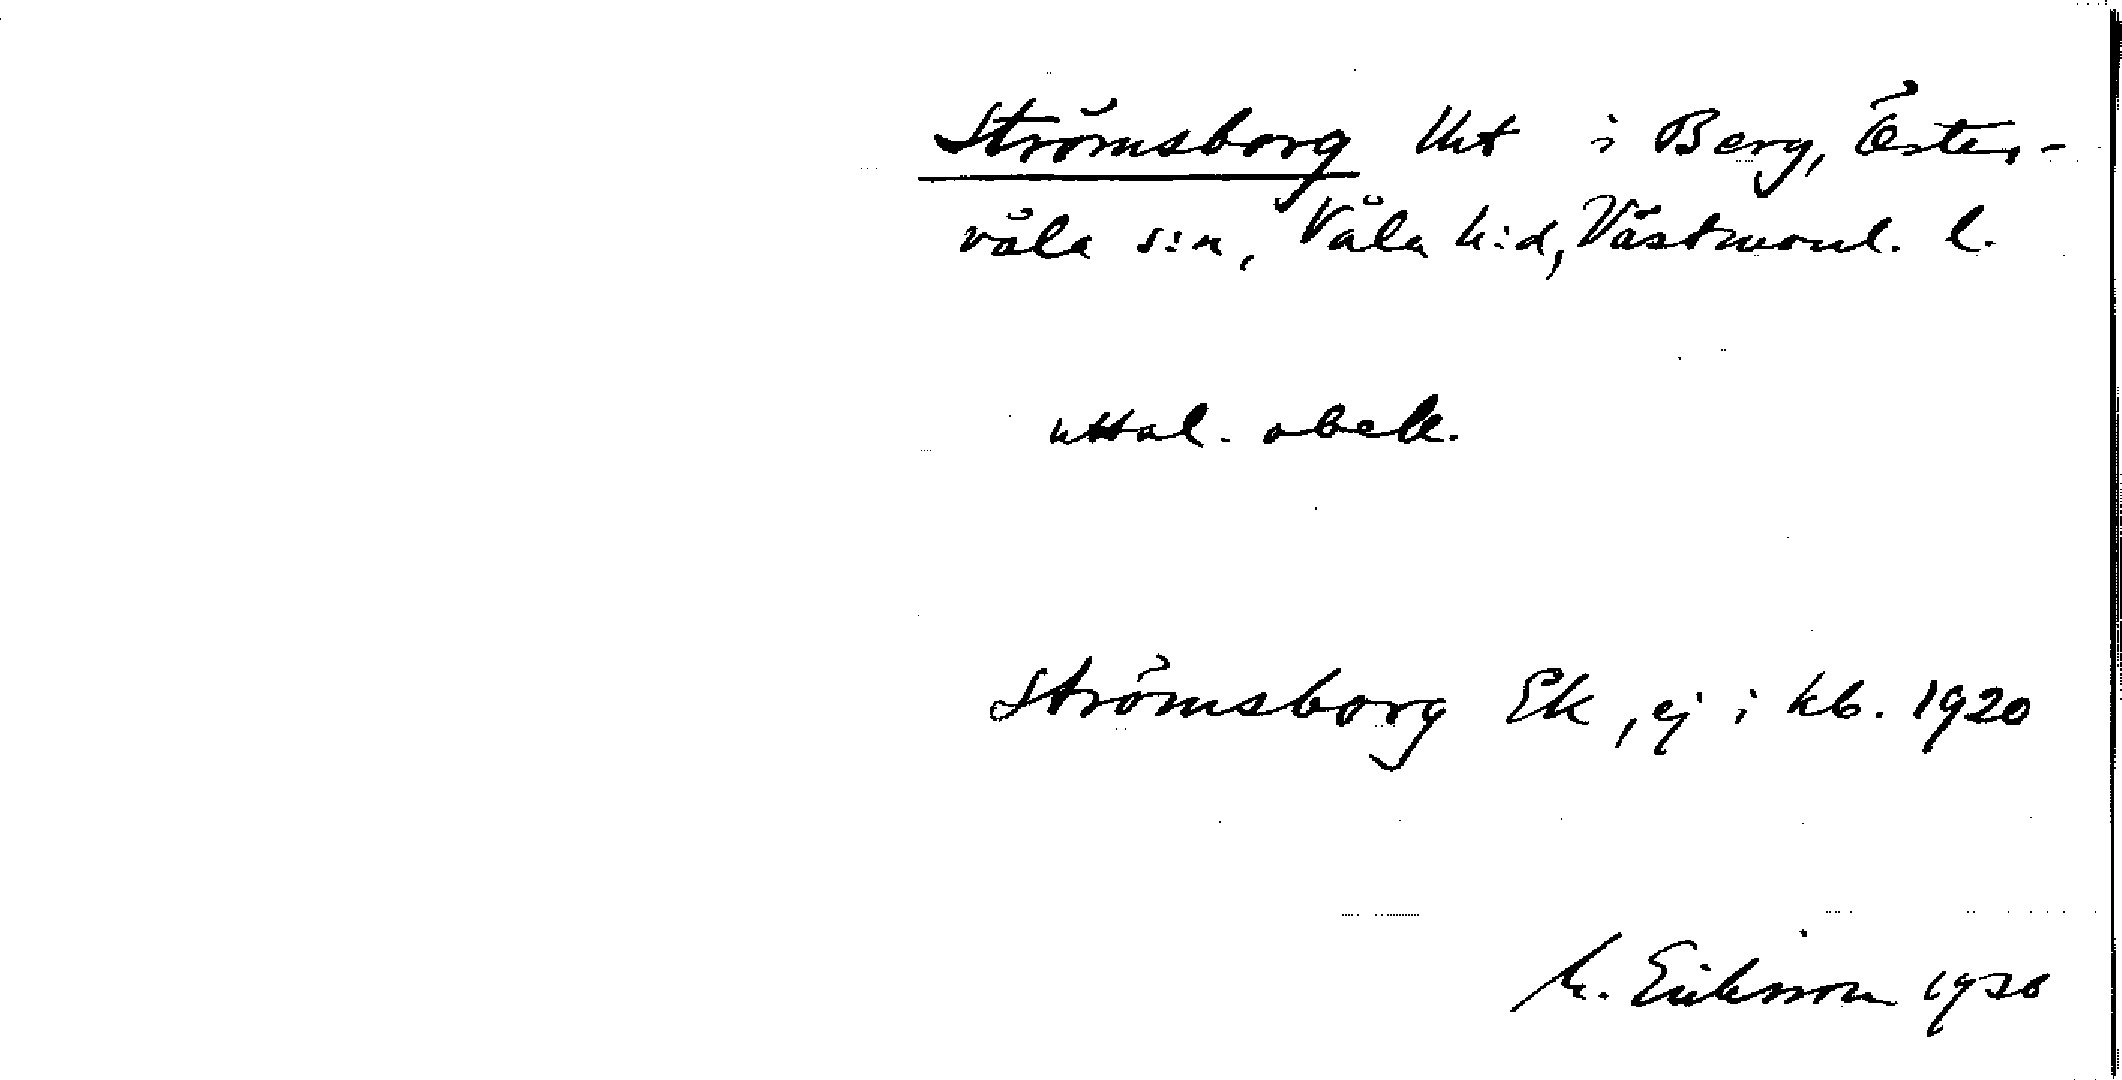 Strömsborg lht i Berg, Öster-
våla s:n, Våla h:d, Västmanl. l.
uttal. obek.
Strömsborg Ek, ej i kb. 1920
M. Eriksson 1936